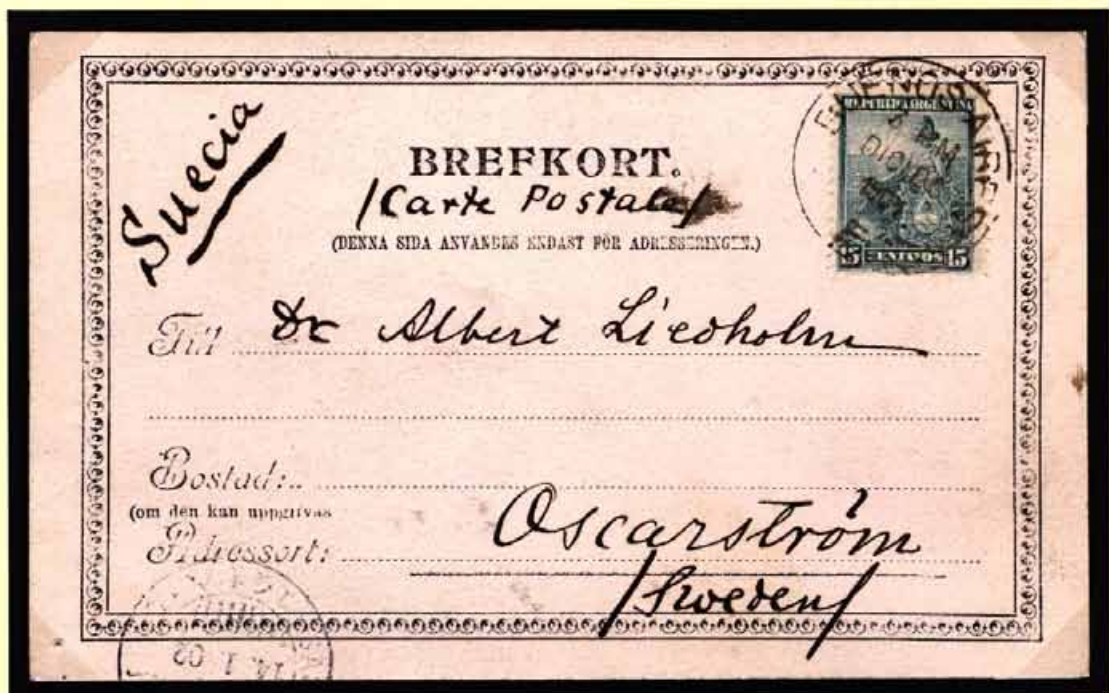 Suecia
BREFKORT.
/Carte Postale/
(DENNA SIDA ANVANDES ENDAST FÖR ADRESSERINGEN.)
REPUBLICA ARGENTINA
15 CENTAVOS 15
BUENOS AIRES
Till Dr Albert Liedholm
Bostad:
(om den kan uppgifvas
Adressort: Oscarström
/Sweden/
14. 1. 02